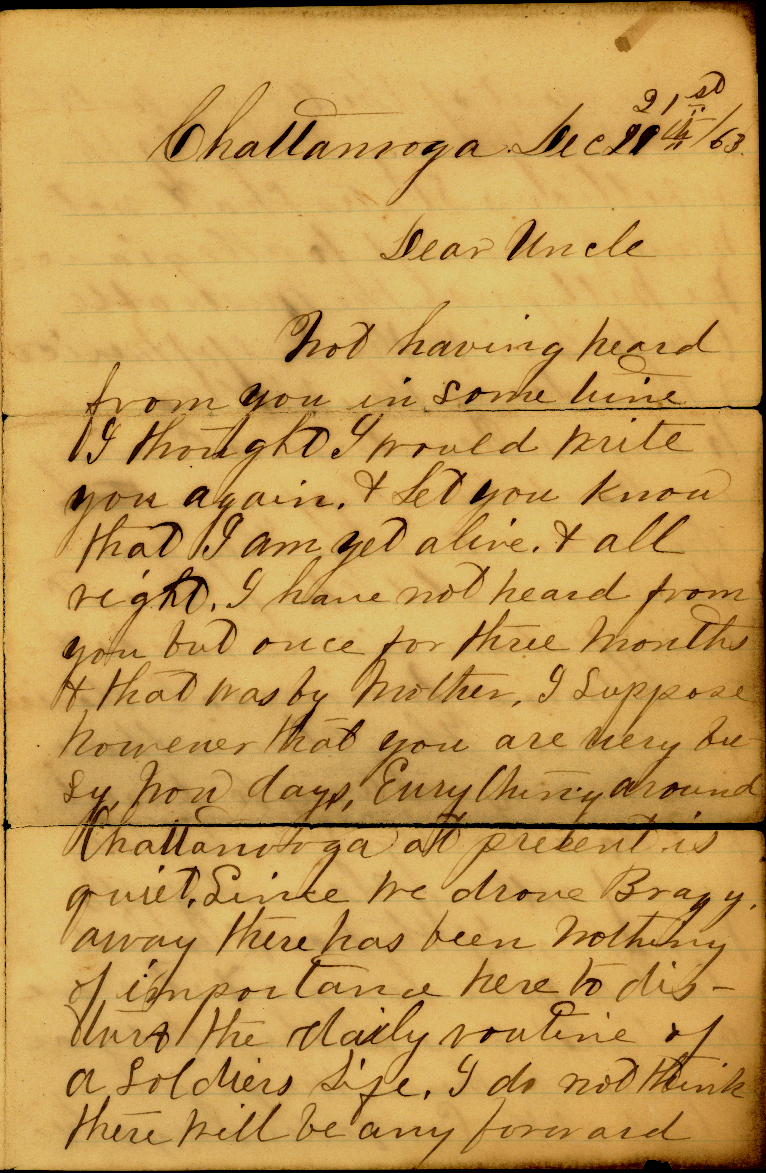 Chattanooga Dec 21st /63.
Dear Uncle
Not having heard
from you in some time
I thought I would write
you again. & let you know
that I am yet alive. & all
right. I have not heard from
you but once for three months
& that was by Mother, I suppose
however that you are very bu-
sy, now days, Everything around
Chattanooga at present is
quiet. Since we drove Bragg.
away there has been nothing
of importance here to dis-
turb the daily routine of
a Soldiers Life. I do not think
there will be any forward